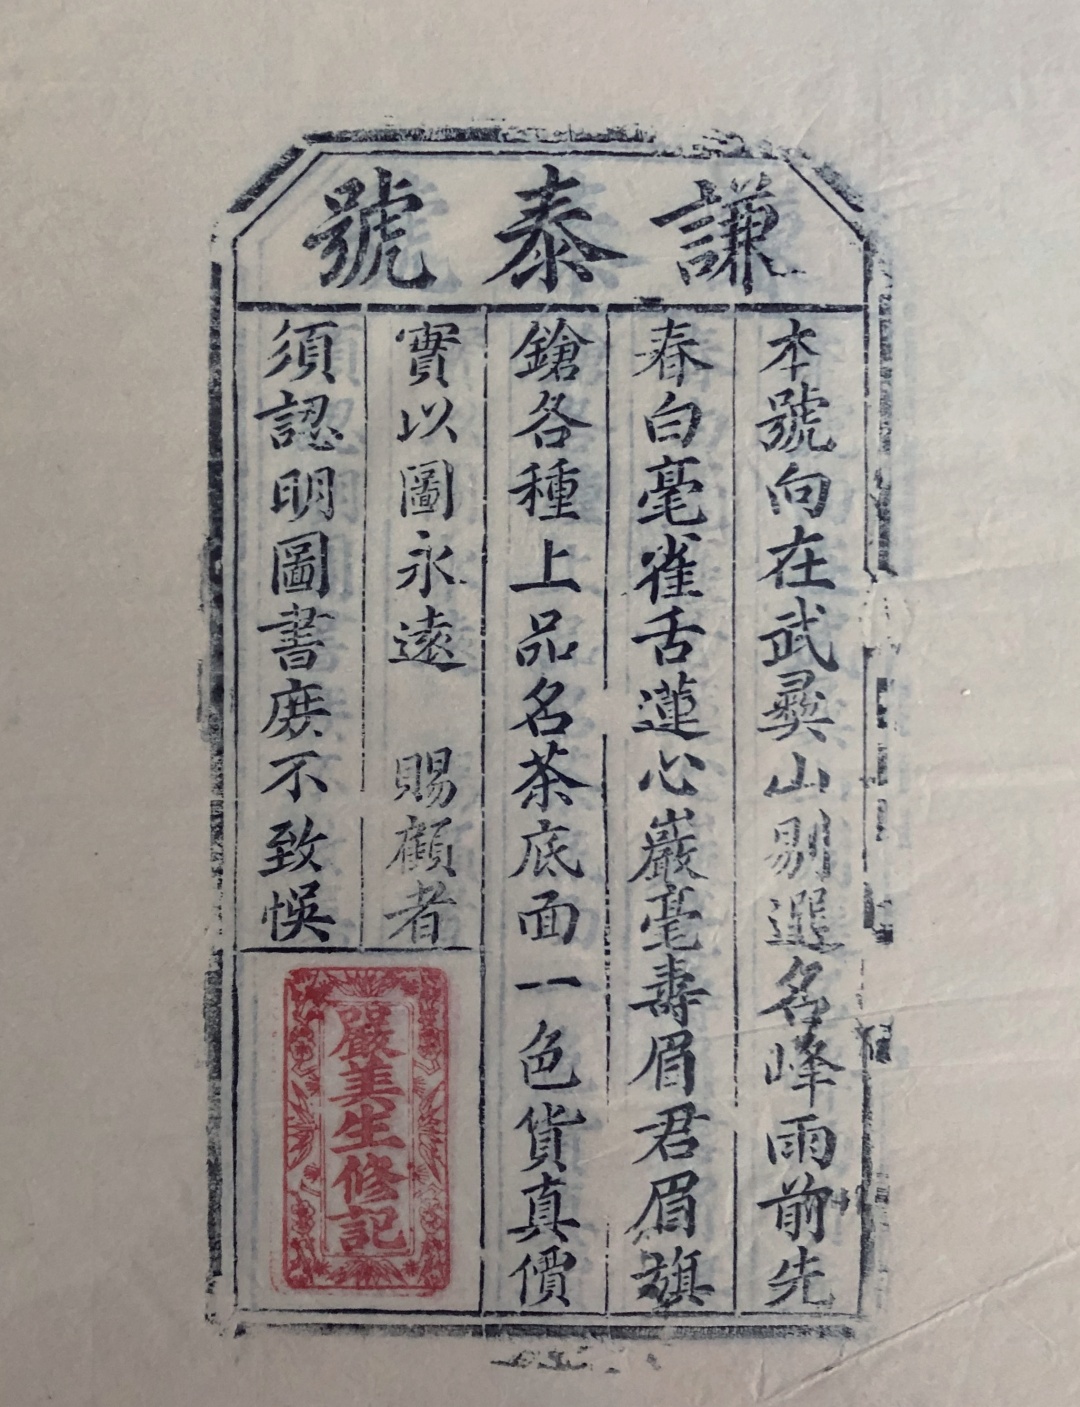 謙泰號
本號向在武彝山剔選名峰雨前先
春白毫雀舌蓮心巖毫壽眉君眉旗
鎗各種上品名茶底面一色貨真價
實以圖永遠　賜顧者
須認明圖書庻不致悞
嚴美生修記